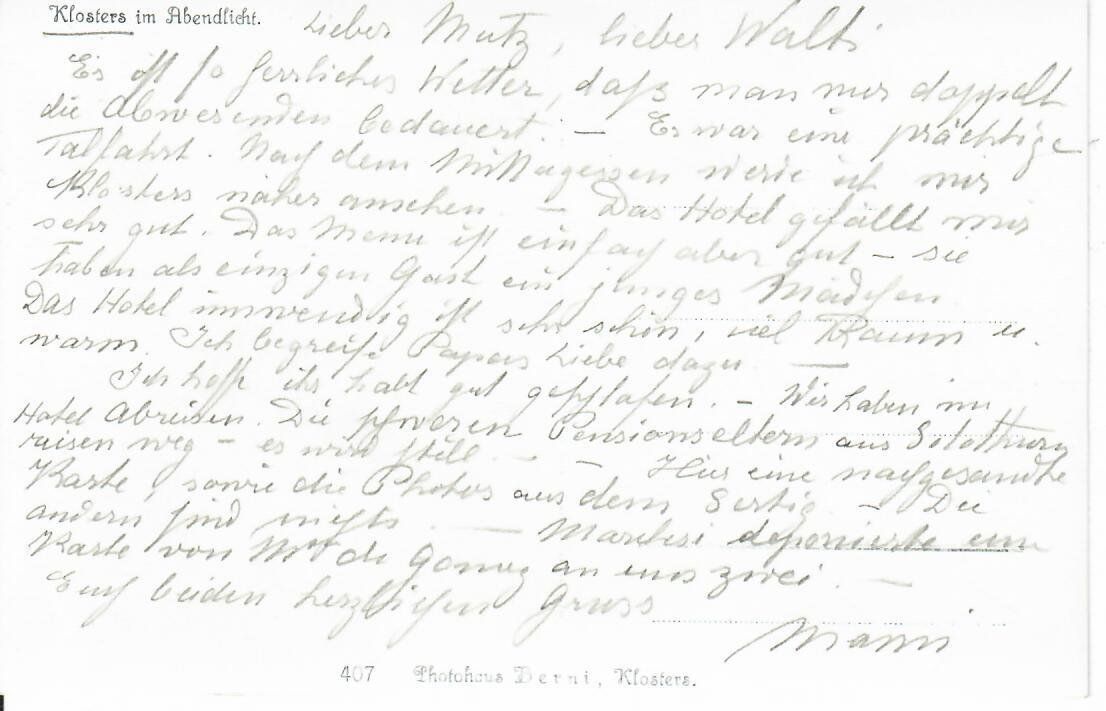 Klosters im Abendlicht.
Lieber Mutz, lieber Walti
Es ist so herrliches Wetter, daß man nur doppelt
die Abwesenden bedauert. – Es war eine prächtige
Talfahrt. Nach dem Mittagessen werde ich mir
Klosters näher ansehen. – Das Hotel gefällt mir
sehr gut. Das Menu ist einfach aber gut – sie
haben als einzigen Gast ein junges Mädchen.
Das Hotel inwendig ist sehr schön, viel Raum u.
warm. Ich begreife Papas Liebe dazu. —
Ich hoffe ihr habt gut geschlafen. – Wir haben im
Hotel Abreisen. Die schweren Pensionseltern aus Solothurn
reisen weg – es wird still. – – Hier eine nachgesandte
Karte, sowie die Photos aus dem Sertig. – Die
andern sind nichts. — deponierte eine
Karte von de an uns zwei. –
Euch beiden herzlichen Gruss
407 Photohaus Berni, Klosters.